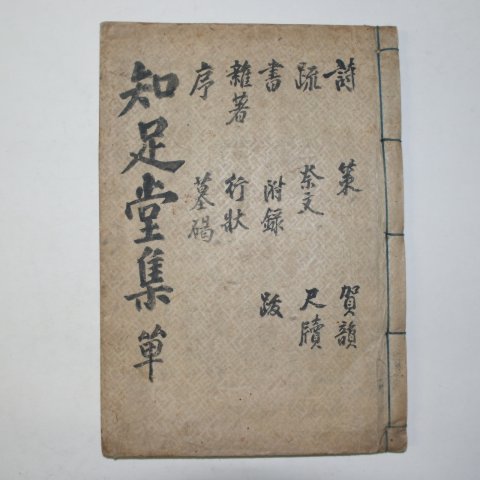 詩 策 賀韻
疏 祭文 尺牘
書 附錄 跋
雜著 行狀
序 墓碣
知足堂集 單